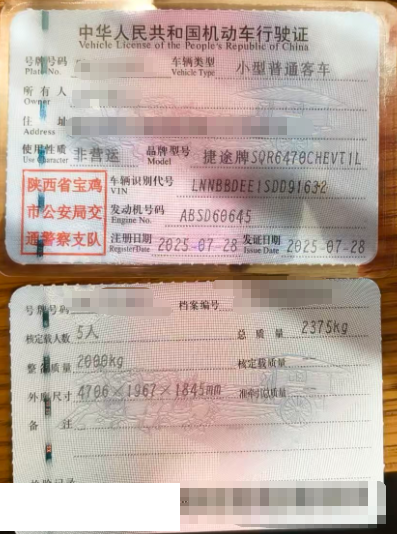 中华人民共和国机动车行驶证
Vehicle License of the People's Republic of China
号牌号码 车辆类型 小型普通客车
Plate No. Vehicle Type
所有人
Owner
住址
Address
使用性质 非营运 品牌型号 捷途牌SQR6470CHEVT1L
Use Character Model
陕西省宝鸡 车辆识别代号 LNNBBDEE1SDD91632
市公安局交 VIN
通警察支队 发动机号码 ABSD60645
Engine No.
注册日期 2025-07-28 发证日期 2025-07-28
Register Date Issue Date
号牌号码 档案编号
核定载人数 5人 总质量 2375kg
整备质量 2000kg 核定载质量
外廓尺寸 4706×1967×1845mm 准牵引总质量
备注